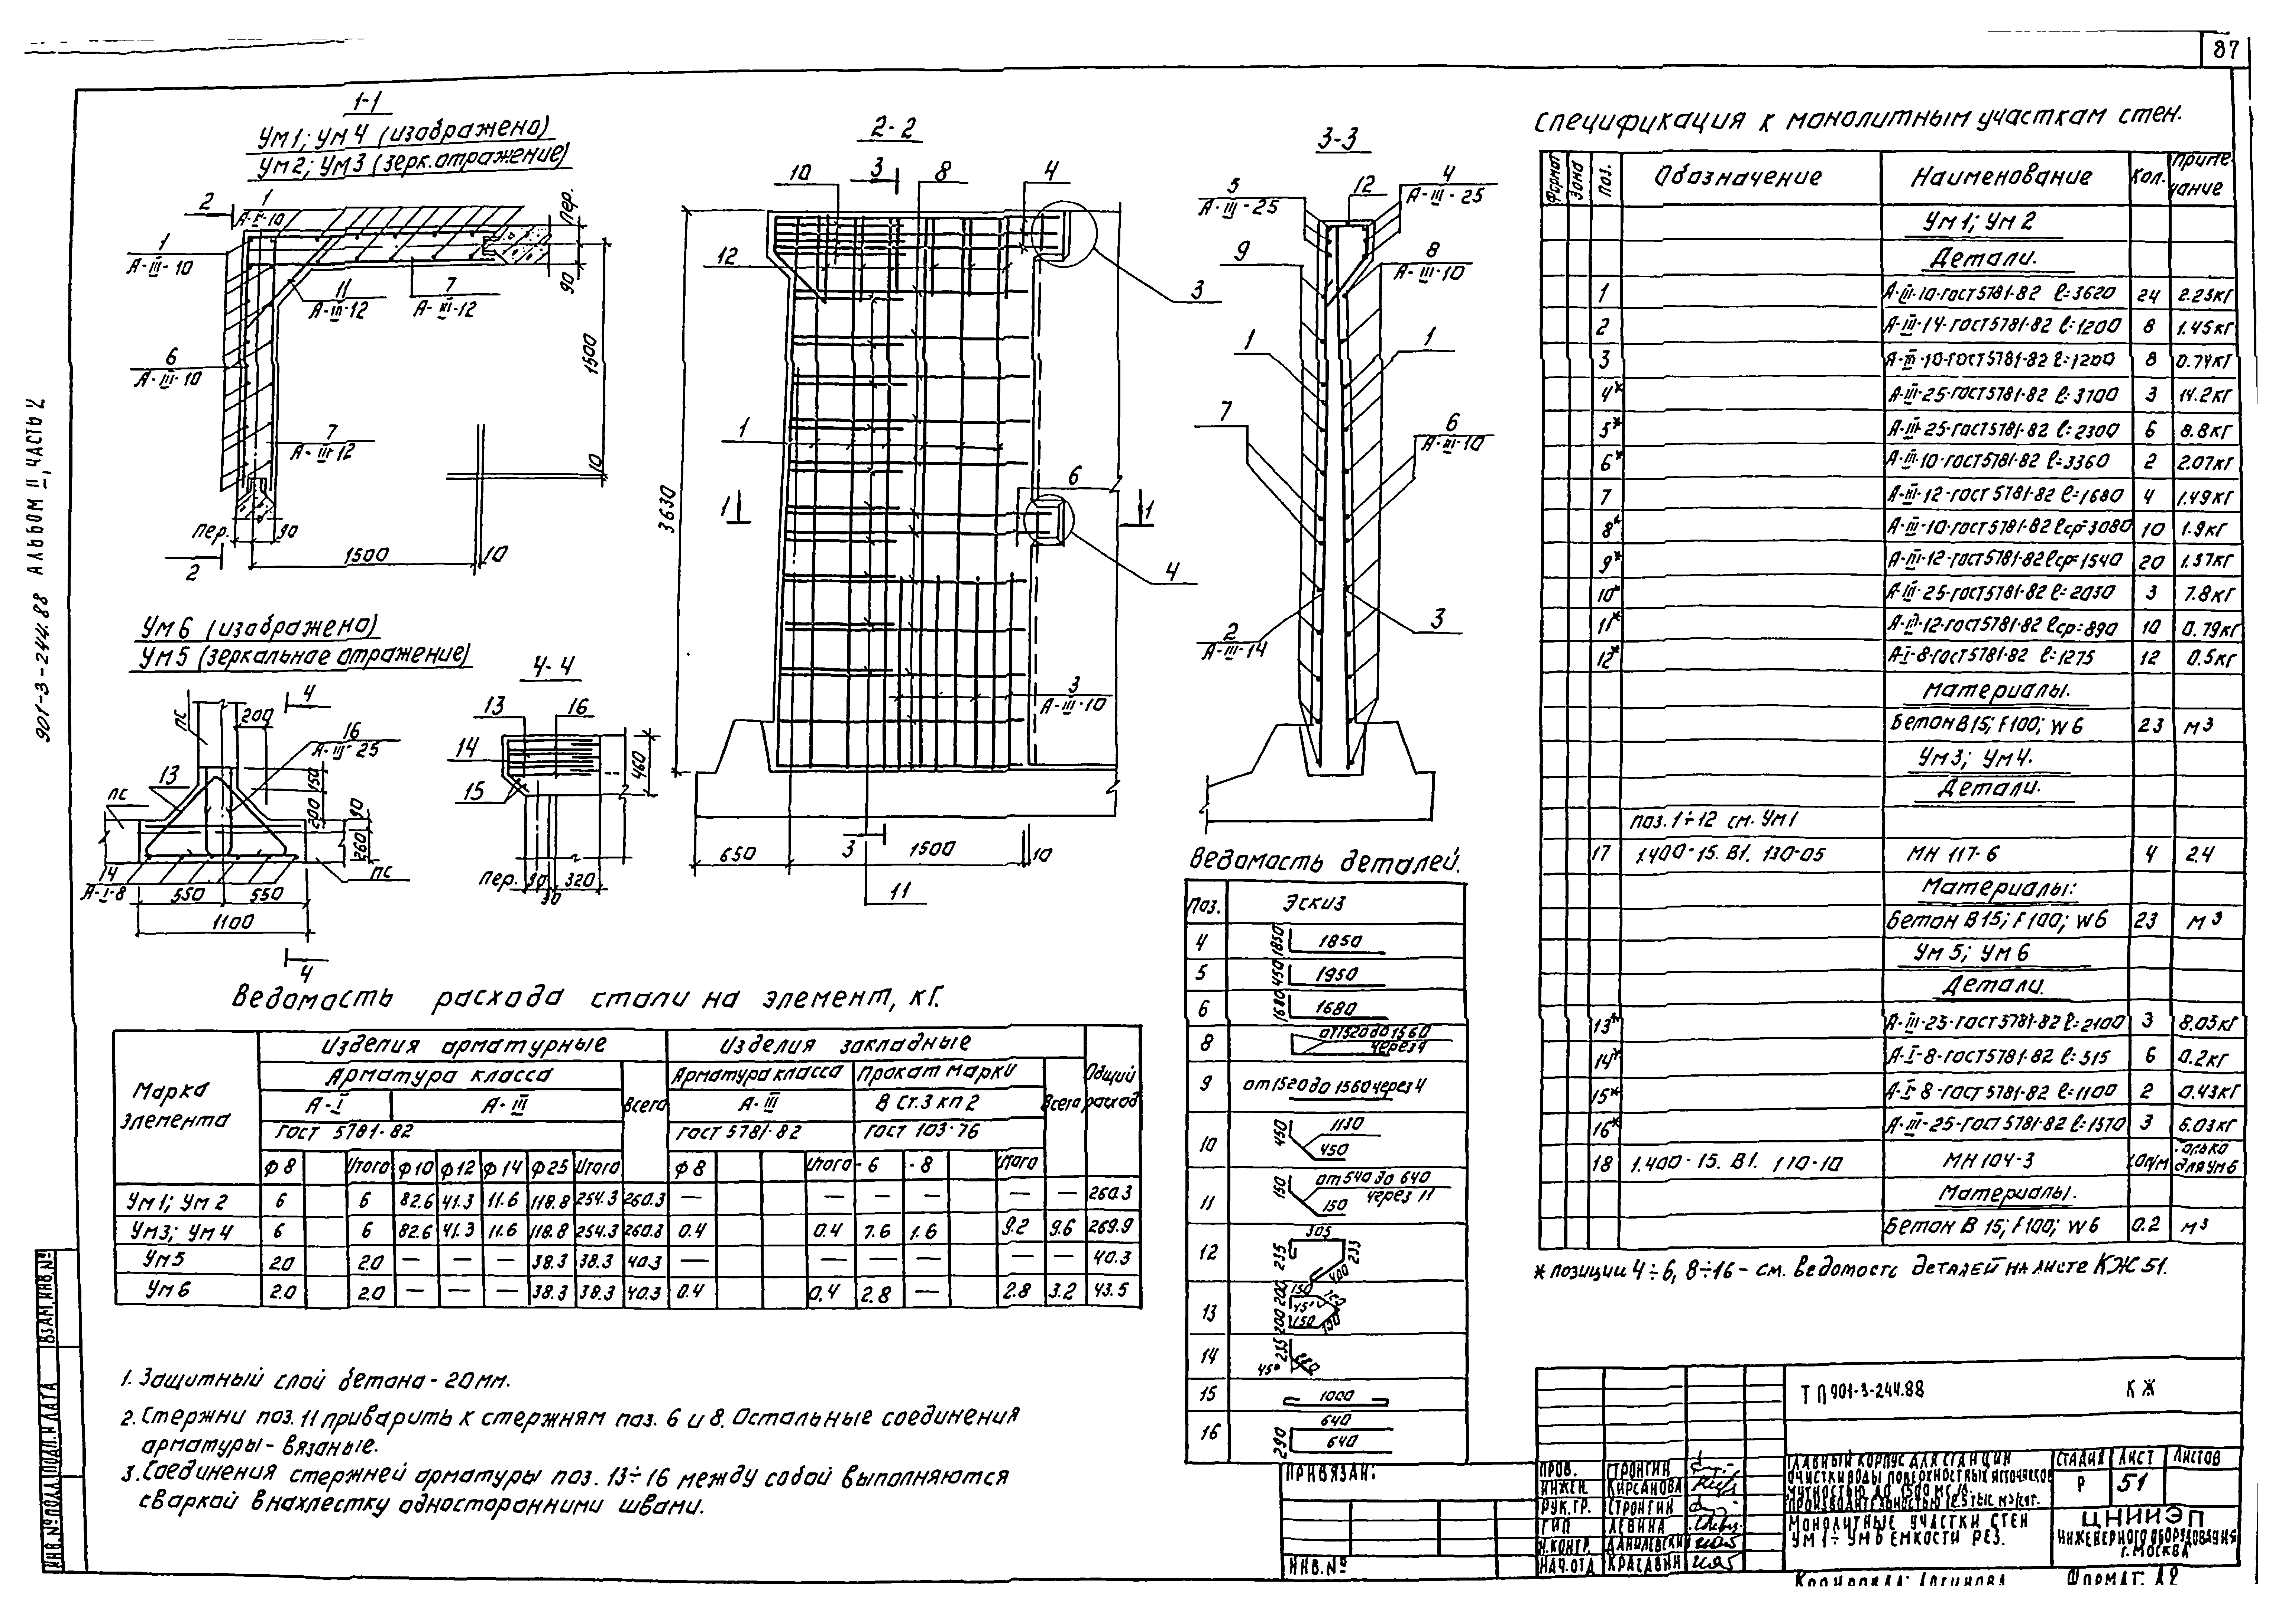 87
901-3-244.88 АЛЬБОМ II, ЧАСТЬ 2
1-1
Ум1; Ум4 (изображено)
Ум2; Ум3 (зерк.отражение)
2
1
А-III-10
пер.
1
А-III-10
11
А-III-12
7
А-III-12
90
1500
10
6
А-III-10
7
А-III-12
пер.
90
1500
10
2
2-2
10
3
8
4
12
3
3630
1
6
1
1
4
3
А-III-10
3
650
1500
10
11
3-3
5
А-III-25
12
4
А-III-25
9
8
А-III-10
1
1
7
6
А-III-10
2
А-III-14
3
Ум6 (изображено)
Ум5 (зеркальное отражение)
4
пс
200
16
А-III-25
13
пс
150
200
90
260
14
А-I-8
пс
550
550
1100
4
4-4
13
16
14
15
460
пер.
90
320
30
Ведомость расхода стали на элемент, кг.
Марка элемента
Изделия арматурные
Изделия закладные
Общий расход
Арматура класса
Всего
Арматура класса
Прокат марки
Всего
А-I
А-III
А-III
В Ст.3 кп 2
ГОСТ 5781-82
ГОСТ 5781-82
ГОСТ 103-76
Ф8 Итого Ф10 Ф12 Ф14 Ф25 Итого Ф8 Итого -6 -8 Итого
Ум1; Ум2 6 6 82.6 41.3 11.6 118.8 254.3 260.3 — — — — — — 260.3
Ум3; Ум4 6 6 82.6 41.3 11.6 118.8 254.3 260.3 0.4 0.4 7.6 1.6 9.2 9.6 269.9
Ум5 2.0 2.0 — — — 38.3 38.3 40.3 — — — — — — 40.3
Ум6 2.0 2.0 — — — 38.3 38.3 40.3 0.4 0.4 2.8 — 2.8 3.2 43.5
1. Защитный слой бетона - 20мм.
2. Стержни поз. 11 приварить к стержням поз. 6 и 8. Остальные соединения
арматуры - вязаные.
3. Соединения стержней арматуры поз. 13÷16 между собой выполняются
сваркой внахлестку односторонними швами.
Ведомость деталей.
Поз. Эскиз
4 1850 1850
5 450 1950
6 1680 1680
8 от 1520 до 1560 через 4
9 от 1520 до 1560 через 4
10 450 1130 450
11 150 от 540 до 640 через 11 150
12 305 235 235 400
13 200 150 45° 200 150
14 235 45°
15 1000
16 640 290 640
Спецификация к монолитным участкам стен.
Формат Зона Поз. Обозначение Наименование Кол. Примечание
Ум1; Ум2
Детали.
1 А-III-10-ГОСТ5781-82 ℓ=3620 24 2.23кг
2 А-III-14-ГОСТ5781-82 ℓ=1200 8 1.45кг
3 А-III-10-ГОСТ5781-82 ℓ=1200 8 0.74кг
4* А-III-25-ГОСТ5781-82 ℓ=3700 3 14.2кг
5* А-III-25-ГОСТ5781-82 ℓ=2300 6 8.8кг
6* А-III-10-ГОСТ5781-82 ℓ=3360 2 2.07кг
7 А-III-12-ГОСТ5781-82 ℓ=1680 4 1.49кг
8* А-III-10-ГОСТ5781-82 ℓср=3080 10 1.9кг
9* А-III-12-ГОСТ5781-82 ℓср=1540 20 1.37кг
10* А-III-25-ГОСТ5781-82 ℓ=2030 3 7.8кг
11* А-III-12-ГОСТ5781-82 ℓср=890 10 0.79кг
12* А-I-8-ГОСТ5781-82 ℓ=1275 12 0.5кг
Материалы.
Бетон В15; F100; W6 23 м3
Ум3; Ум4.
Детали.
поз. 1÷12 см. Ум1
17 1.400-15. В1. 130-05 МН 117-6 4 2.4
Материалы:
Бетон В15; F100; W6 23 м3
Ум5; Ум6
Детали.
13* А-III-25-ГОСТ5781-82 ℓ=2100 3 8.05кг
14* А-I-8-ГОСТ5781-82 ℓ=515 6 0.2кг
15* А-I-8-ГОСТ5781-82 ℓ=1100 2 0.43кг
16* А-III-25-ГОСТ5781-82 ℓ=1570 3 6.03кг
18 1.400-15. В1. 110-10 МН 104-3 только для Ум6
Материалы.
Бетон В15; F100; W6 0.2 м3
* позиции 4÷6, 8÷16 - см. ведомость деталей на листе КЖ 51.
ТП 901-3-244.88 КЖ
ГЛАВНЫЙ КОРПУС ДЛЯ СТАНЦИИ
ОЧИСТКИ ВОДЫ ПОВЕРХНОСТНЫХ ИСТОЧНИКОВ
МУТНОСТЬЮ ДО 1500 МГ/Л.
ПРОИЗВОДИТЕЛЬНОСТЬЮ 12.5 ТЫС. М3/СУТ.
СТАДИЯ ЛИСТ ЛИСТОВ
Р 51
МОНОЛИТНЫЕ УЧАСТКИ СТЕН
УМ1÷УМ6 ЕМКОСТИ РЕЗ.
ЦНИИЭП
ИНЖЕНЕРНОГО ОБОРУДОВАНИЯ
Г. МОСКВА
ПРОВ. СТРОНГИН
ИНЖЕН. КИРСАНОВА
РУК.ГР. СТРОНГИН
ГИП ЛЕВИНА
Н.КОНТР. ДАНИЛЕВСКИЙ
НАЧ.ОТД КРАСАВИН
ПРИВЯЗАН:
ИНВ.№
ВЗАМ.ИНВ.№
ПОДП. И ДАТА
ИНВ.№ ПОДЛ.
КОПИРОВАЛ: ЛОГИНОВА ФОРМАТ: А2